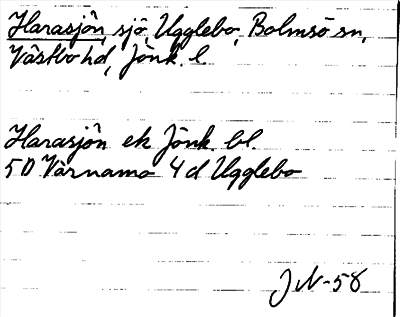 Harasjön, sjö, Ugglebo, Bolmsö sn,
Västbo hd, Jönk. l.
Harasjön ek Jönk. bl.
5D Värnamo 4 d Ugglebo
JN-58